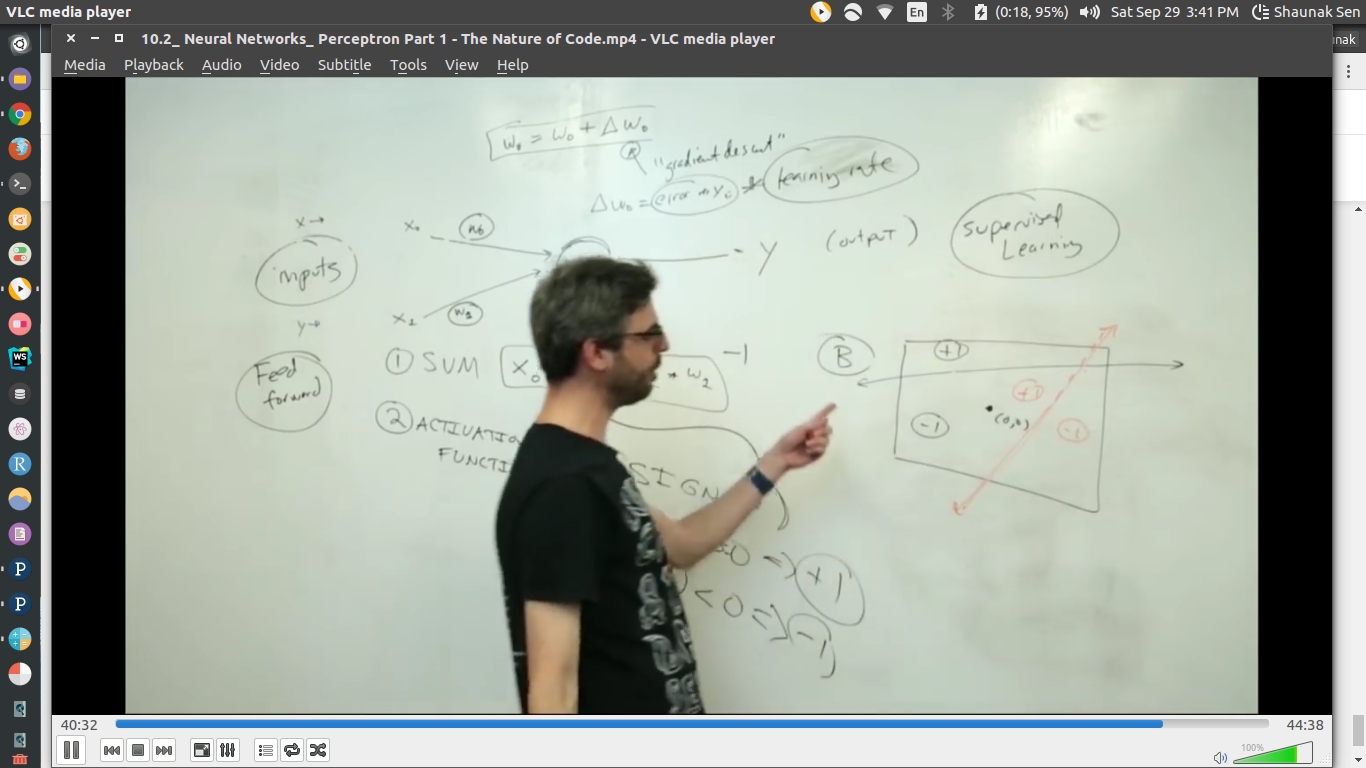 VLC media player
En
(0:18, 95%)
Sat Sep 29 3:41 PM
Shaunak Sen
10.2_ Neural Networks_ Perceptron Part 1 - The Nature of Code.mp4 - VLC media player
nak
Media Playback Audio Video Subtitle Tools View Help
W₀ = W₀ + ΔW₀
"gradient descent"
ΔW₀ = error * X₀ * learning rate
x→
inputs
y→
Feed
forward
X₀
W₀
X₁
W₁
Y
(output)
Supervised
Learning
① SUM
X₀
* W₂
-1
② ACTIVATIO
FUNCTI
SIGN
=0 => +1
< 0 => -1
B
+1
-1
(0,0)
+1
-1
WS
R
P
P
40:32
44:38
100%